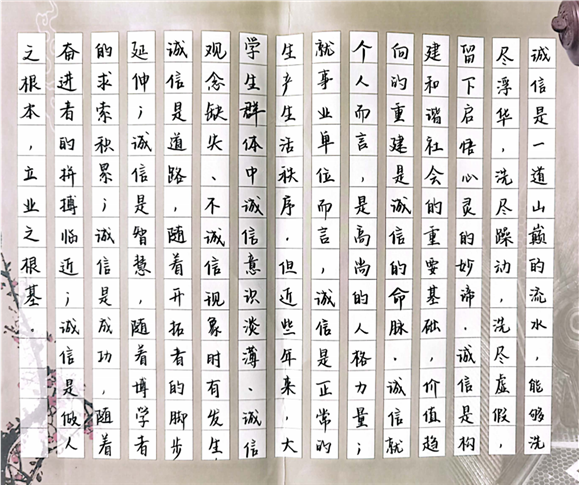 诚信是一道山巅的流水，能够洗
尽浮华，洗尽躁动，洗尽虚假，
留下启悟心灵的妙谛．诚信是构
建和谐社会的重要基础，价值趋
向的重建是诚信的命脉．诚信就
个人而言，是高尚的人格力量；
就事业单位而言，诚信是正常的
生产生活秩序．但近些年来，大
学生群体中诚信意识淡薄、诚信
观念缺失、不诚信现象时有发生．
诚信是道路，随着开拓者的脚步
延伸；诚信是智慧，随着博学者
的求索积累；诚信是成功，随着
奋进者的拼搏临近；诚信是做人
之根本，立业之根基．